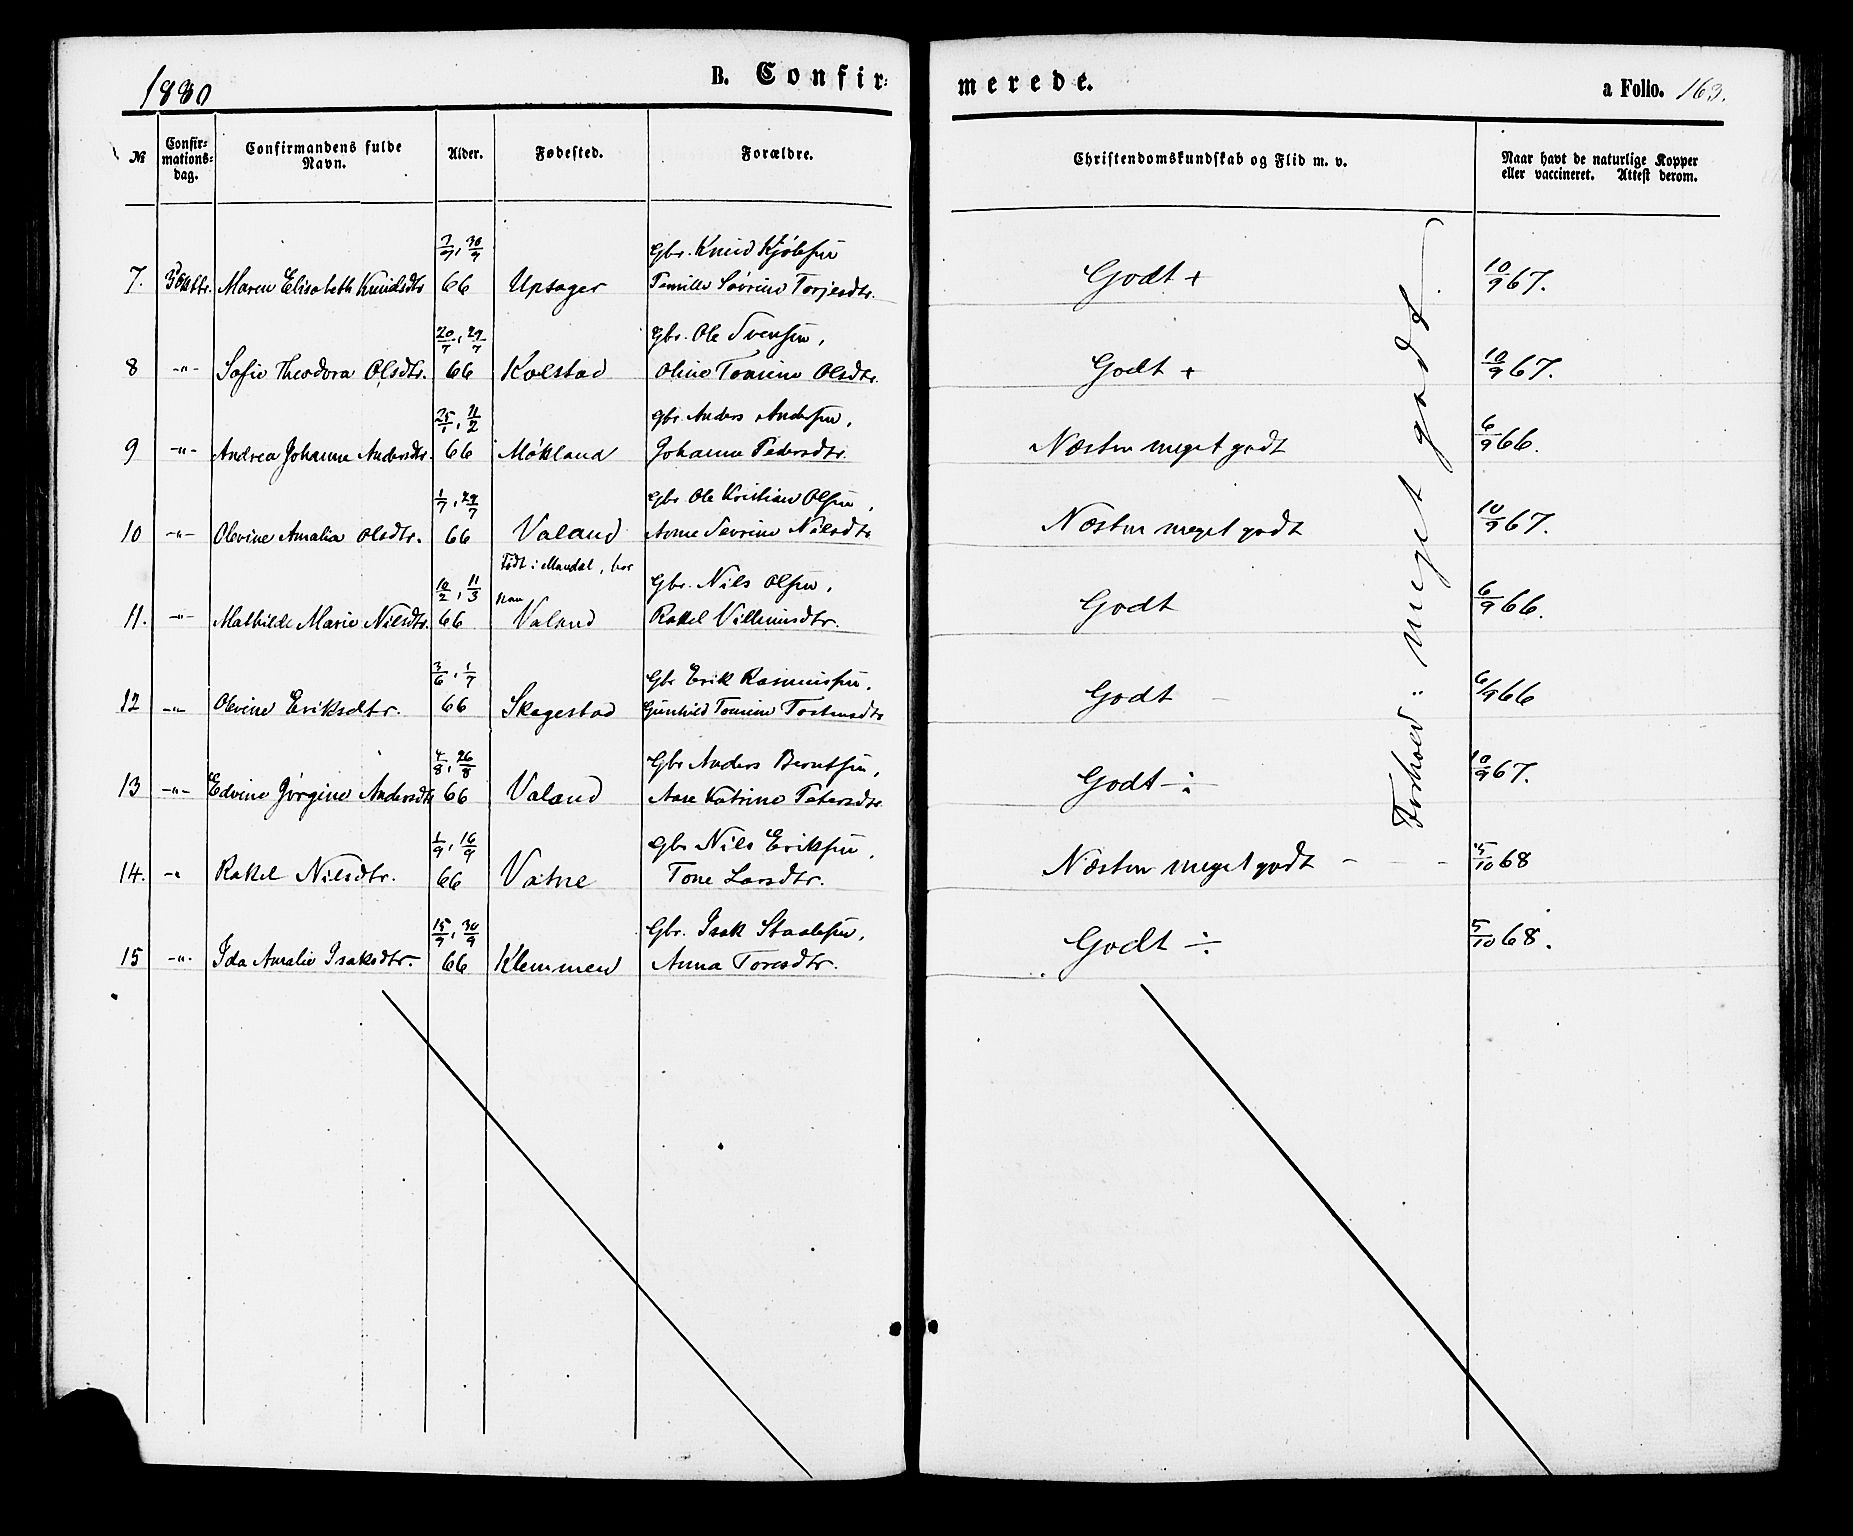 1880 B. Confir: merede. a Folio. 163.
№ Confir=mations=dag. Confirmandens fulde Navn. Alder. Fødested. Forældre. Christendomskundskab og Flid m. v. Naar havt de naturlige Kopper eller vaccineret. Attest derom.
30/9 Gbr. Knud
7. 3 Oktbr. Maren Elisabeth Knudsdtr 66 Upsager Pernille Sövrine Torjesdtr. Godt + 10/9 67.
20/7, 29/7 Gbr. Ole Svensen,
8 -"- Sofie Theodora Olsdtr. 66 Kolstad Oline Tomine Olsdtr. Godt + 10/9 67.
25/1, 11/2 Gbr. Anders Andersen,
9 -"- Andrea Johanne Andersdtr. 66 Møkland Johanne Pedersdtr. Næsten meget godt 6/9 66.
1/7, 29/7 Gbr Ole Kristian Olsen,
10 -"- Olevine Amalia Olsdtr. 66 Valand Anne Sevrine Nilsdtr Næsten meget godt 10/9 67.
Født i Mandal, bor
10/2, 11/3 Gbr. Nils Olsen,
11. -"- Mathilde Marie Nilsdtr. 66 Valand Rakel Villumsdtr. Godt 6/9 66.
3/6, 1/7 Gbr Erik Rasmussen,
12 -"- Olevine Eriksdtr. 66 Skogestad Gunhild Tomine Tostensdtr Godt 6/9 66
4/8, 26/8 Gbr Anders Berntsen,
13 -"- Edvine Jörgine Andersdtr 66 Valand Aase Katrine Petersdtr Godt ÷ 10/9 67.
1/9, 16/9 Gbr Nils Eriksen,
14. -" Rakel Nilsdtr. 66 Vatne Tone Larsdtr. Næsten meget godt - - - 5/10 68
15/9, 30/9 Gbr. Isak Staalesen,
15 -"- Ida Amalie Isaksdtr. 66 Klemmen Anna Toresdtr. Godt ÷ 5/10 68.
Forhold: meget godt